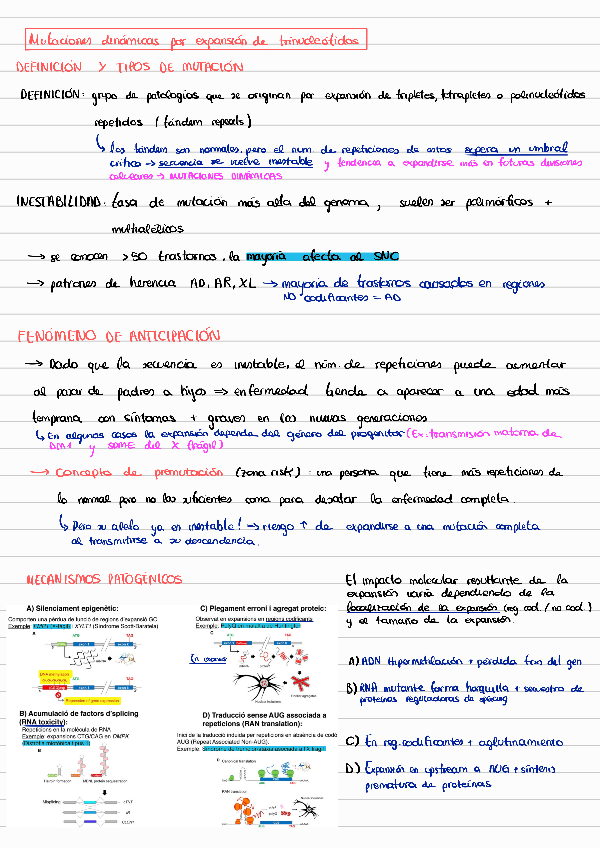 Mutaciones dinámicas por expansión de trinucleótidos
DEFINICIÓN Y TIPOS DE MUTACIÓN
DEFINICIÓN: grupo de patologias que se originan por expansión de tripletes, tetrapletes o polinucleótidos
repetidos (tándem repeats)
↳ los tándem son normales, pero el num. de repeticiones de estos supera un umbral
crítico → secuencia se vuelve inestable y tendencia a expandirse más en futuras divisiones
celulares → MUTACIONES DINÁMICAS
INESTABILIDAD: tasa de mutación más alta del genoma, suelen ser polimórficos +
multialélicos
→ se conocen >50 trastornos, la mayoría afecta al SNC
→ patrones de herencia AD, AR, XL → mayoría de trastornos causados en regiones
NO codificantes = AD
FENÓMENO DE ANTICIPACIÓN
→ Dado que la secuencia es inestable, el núm. de repeticiones puede aumentar
al pasar de padres a hijos ⇒ enfermedad tiende a aparecer a una edad más
temprana con síntomas + graves en las nuevas generaciones
↳ En algunos casos la expansión depende del género del progenitor (Ex: transmisión materna de
DM1 y SDME del X frágil)
→ Concepto de premutación (zona risk): una persona que tiene más repeticiones de
lo normal pero no las suficientes como para desatar la enfermedad completa.
↳ Pero su alelo ya en inestable! → riesgo ↑ de expandirse a una mutación completa
al transmitirse a su descendencia.
MECANISMOS PATOGÉNICOS
El impacto molecular resultante de la
expansión varía dependiendo de la
localización de la expansión (reg cod. / no cod.)
y el tamaño de la expansión.
A) Silenciament epigenètic:
Comporten una pèrdua de funció de regions d'expansió GC
Exemple: XYLT1 (Síndrome Scott-Baratela)
C) Plegament erroni i agregat proteic:
Observat en expansions en regions codificants
Exemple: PolyQ en malaltia de Huntington
En exones
A) ADN Hipermetilación + pérdida fxn del gen
B) RNA mutante forma horquilla + secuestro de
proteínas reguladoras de splicing
B) Acumulació de factors d'splicing
(RNA toxicity):
Repeticions en la molècula de RNA
Exemple: expansions CTG/CAG en DMPK
(Distròfia miotònica tipus 1)
D) Traducció sense AUG associada a
repeticions (RAN translation):
Inici de la traducció induïda per repeticions en absència de codó
AUG (Repeat Associated Non-AUG).
Canonical translation
RAN translation
C) En reg. codificantes + aglutinamiento
D) Expansión en upstream a AUG + síntesis
prematura de proteínas